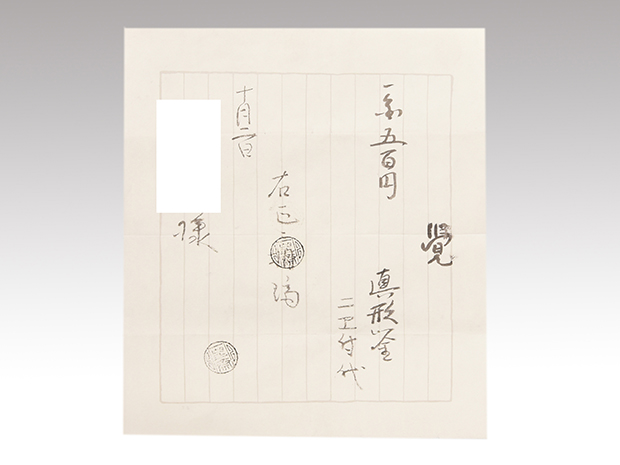 覺
一金五百円
真形釜
付代
右正ニ
十月二日
様